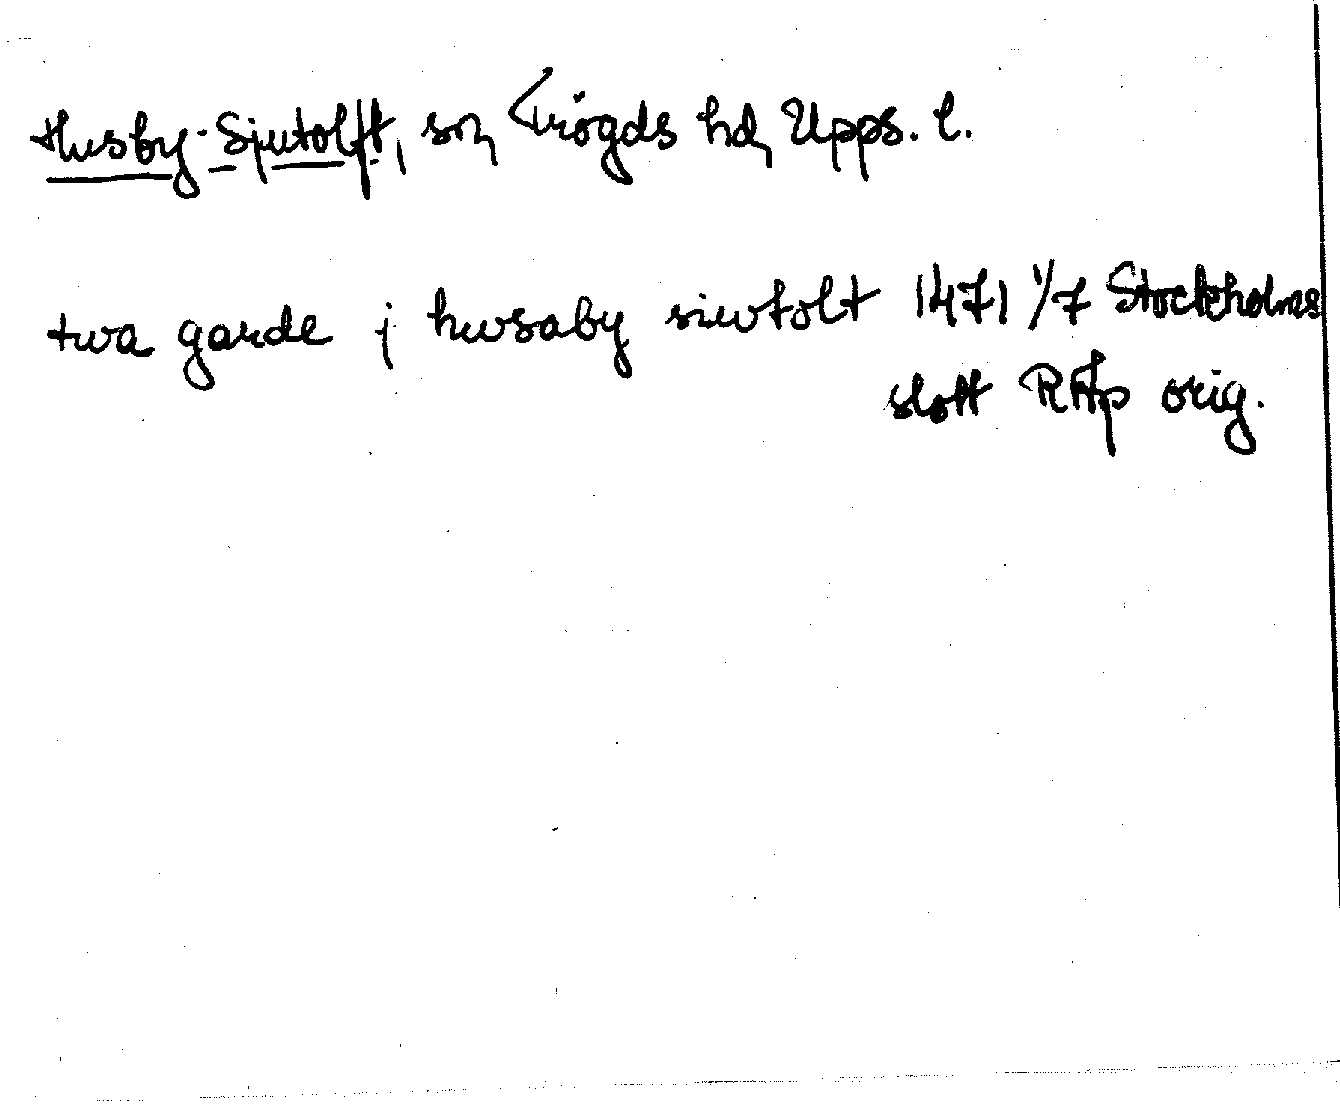 Husby-Sjutolft, sn, Trögds hd, Upps. l.
twa garde j hwsaby siwtolt 1471 1/7 Stockholms
slott RAp orig.